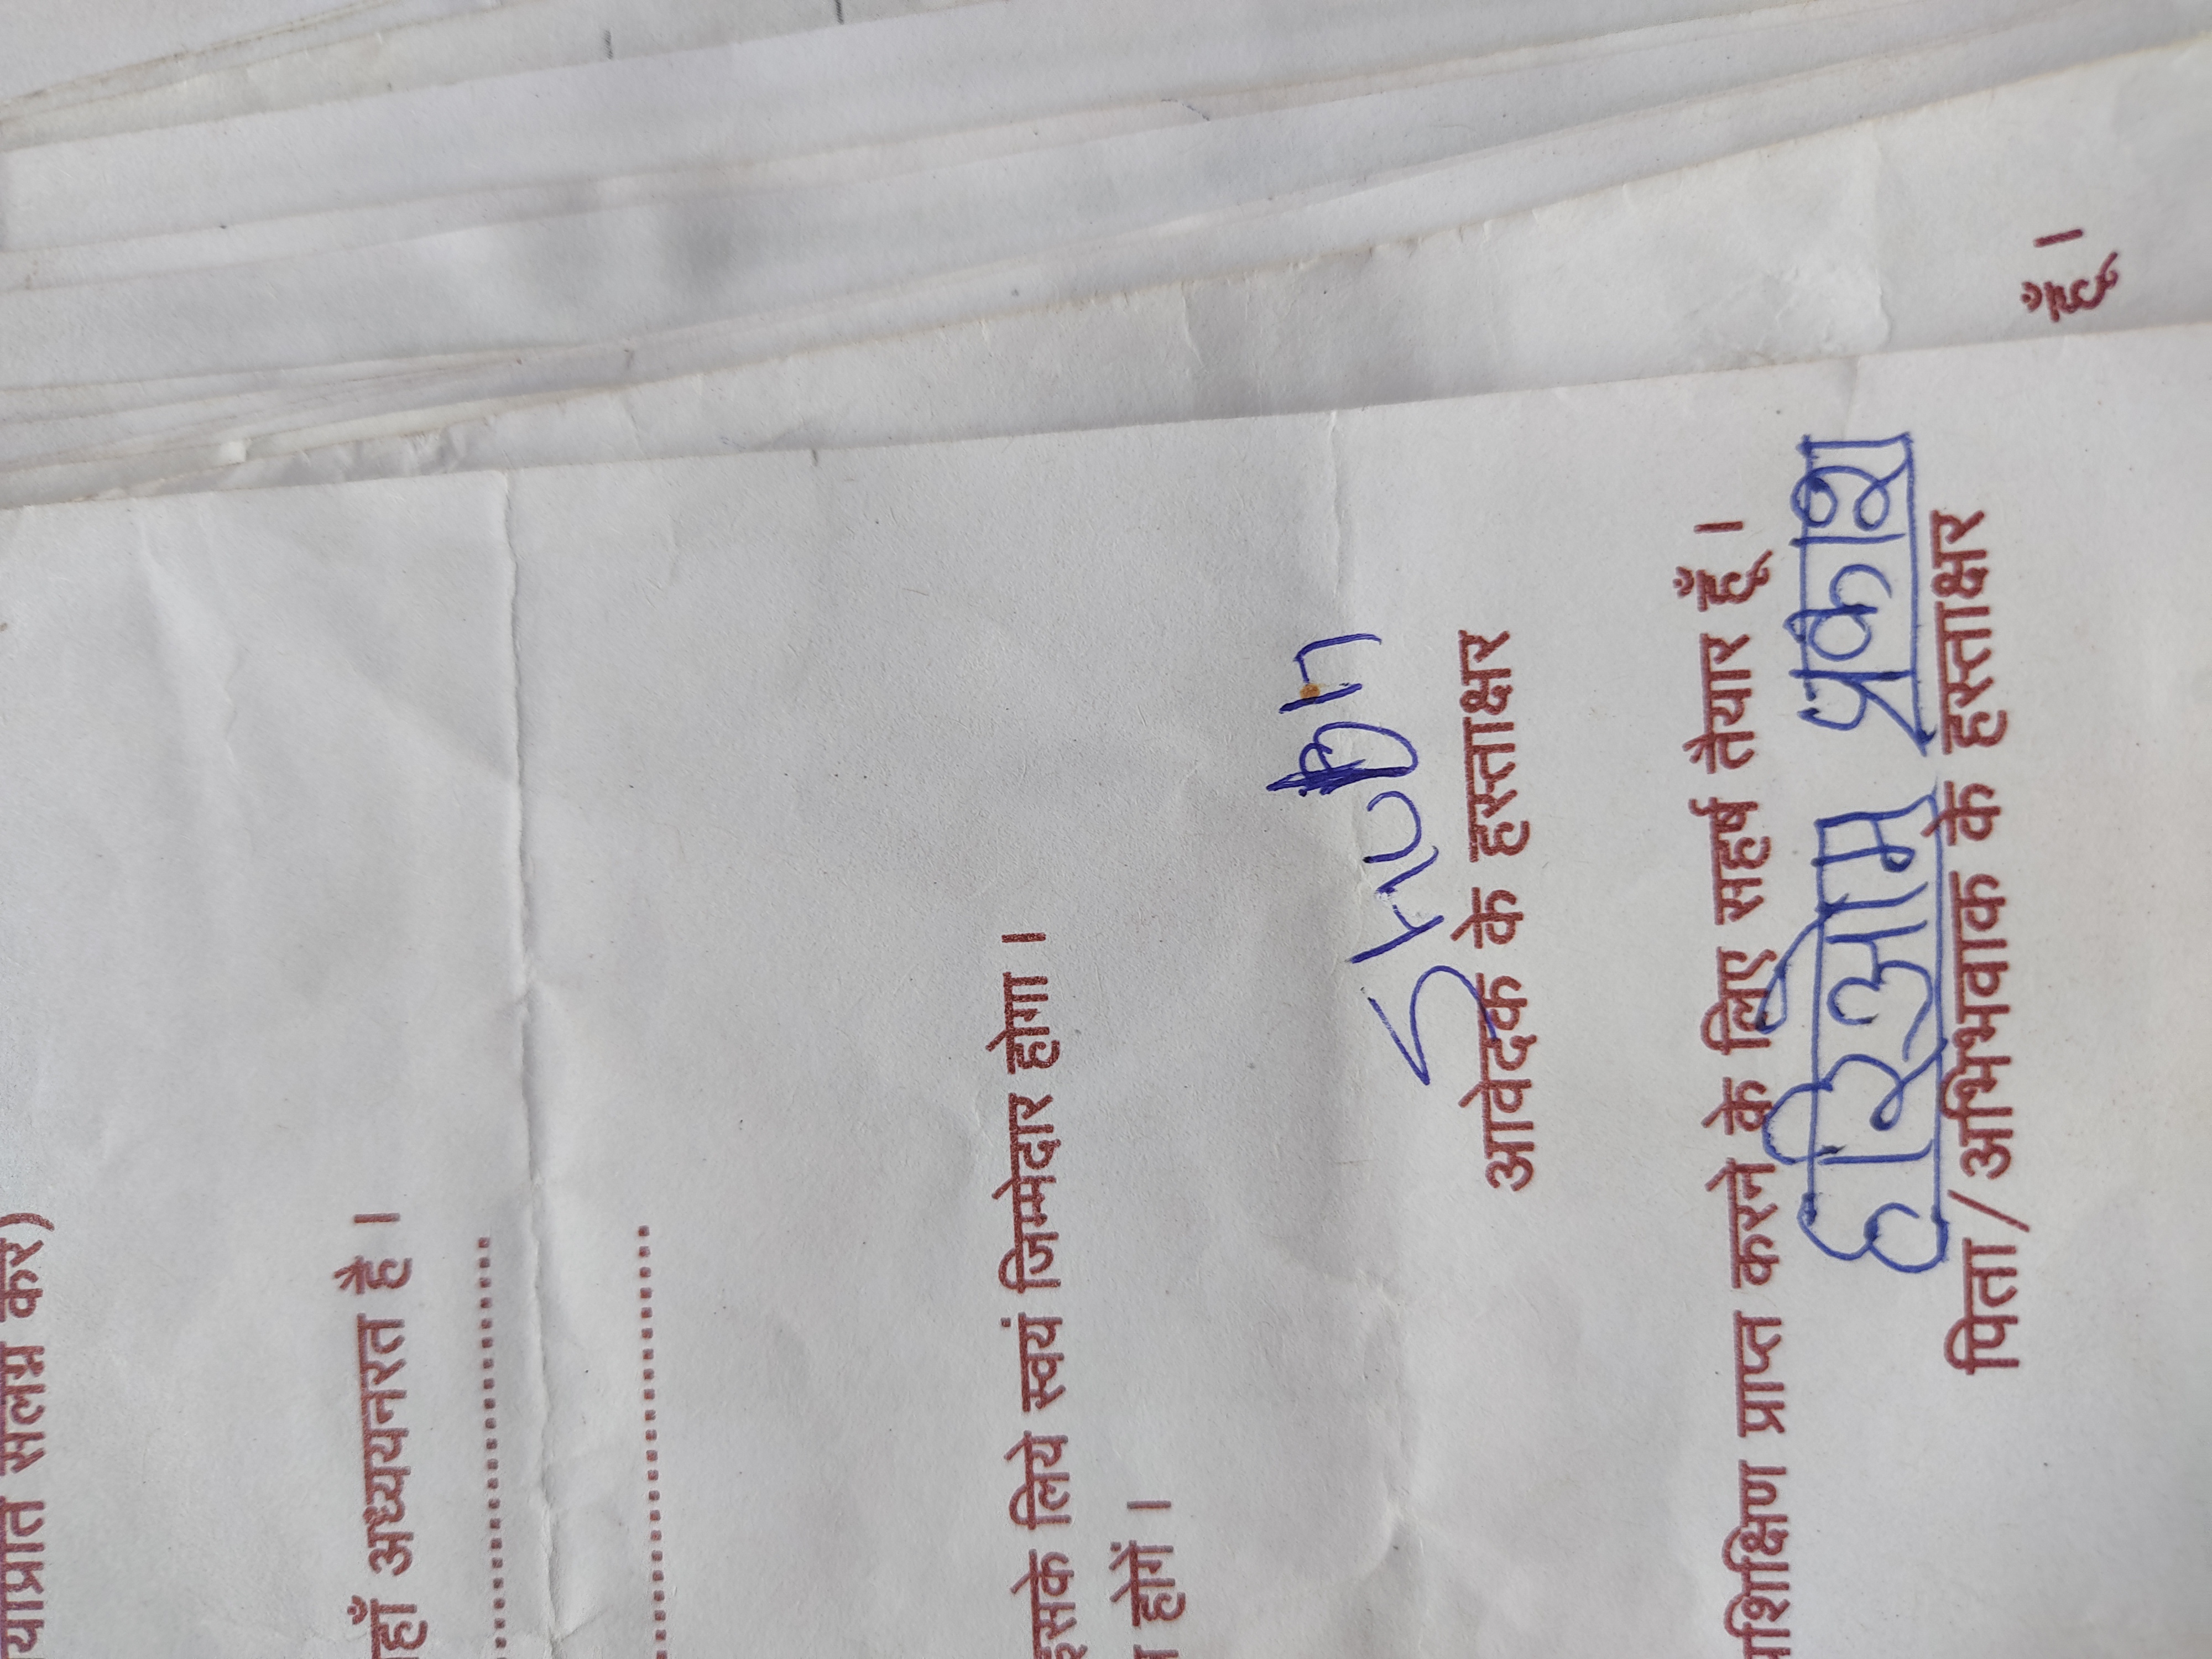 याप्रति संलग्न करें)
हाँ अध्ययनरत है।
इसके लिये स्वयं जिम्मेदार होगा।
होगें।
आवेदक के हस्ताक्षर
प्रशिक्षिण प्राप्त करने के लिए सहर्ष तैयार हूँ।
हरिओम प्रकाश
पिता/अभिभवाक के हस्ताक्षर
हूँ।